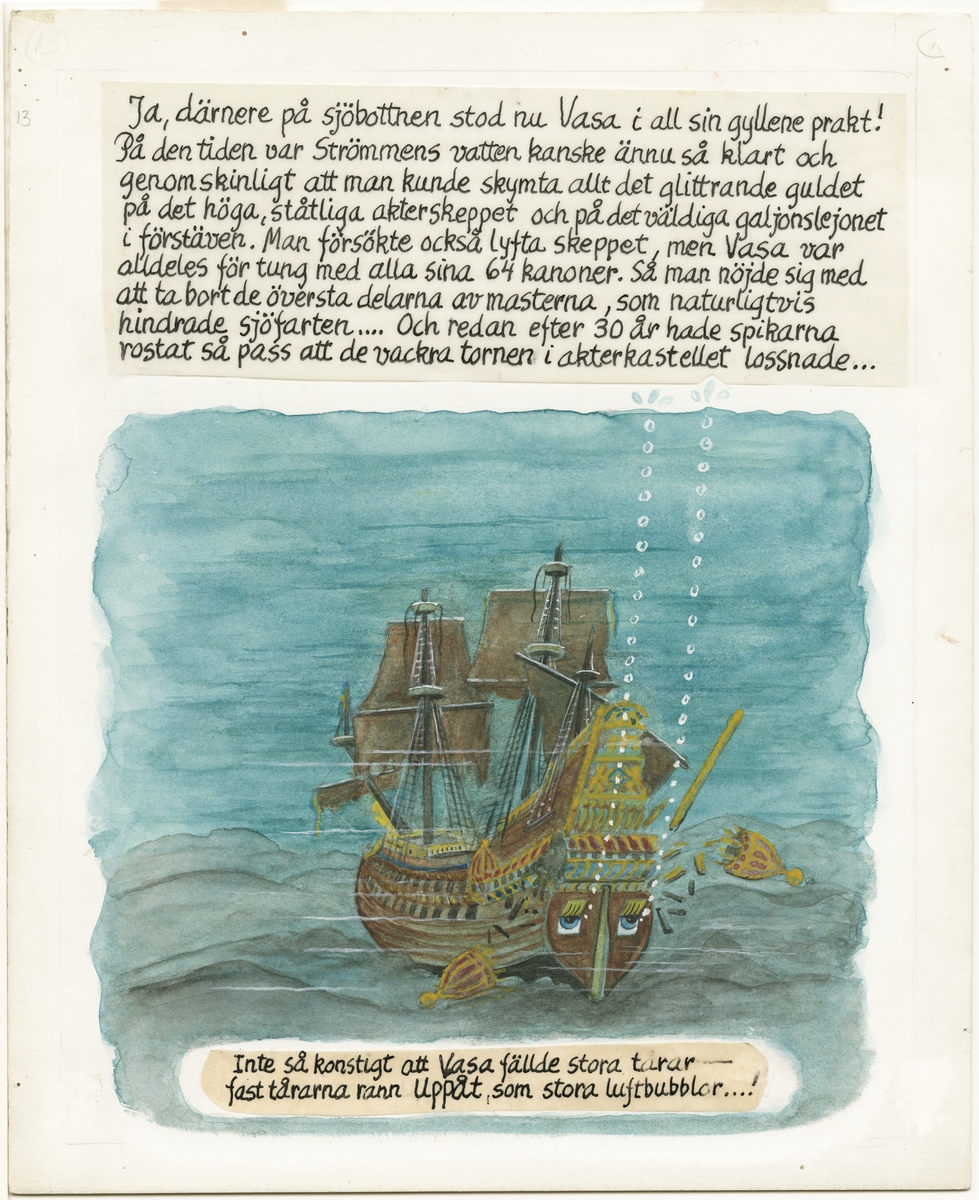 13
13
Ja, därnere på sjöbottnen stod nu Vasa i all sin gyllene prakt!
På den tiden var Strömmens vatten kanske ännu så klart och
genomskinligt att man kunde skymta allt det glittrande guldet
på det höga, ståtliga akterskeppet och på det väldiga galjonslejonet
i förstäven. Man försökte också lyfta skeppet, men Vasa var
alldeles för tung med alla sina 64 kanoner. Så man nöjde sig med
att ta bort de översta delarna av masterna, som naturligtvis
hindrade sjöfarten.... Och redan efter 30 år hade spikarna
rostat så pass att de vackra tornen i akterkastellet lossnade...
Inte så konstigt att Vasa fällde stora tårar —
fast tårarna rann uppåt, som stora luftbubblor....!